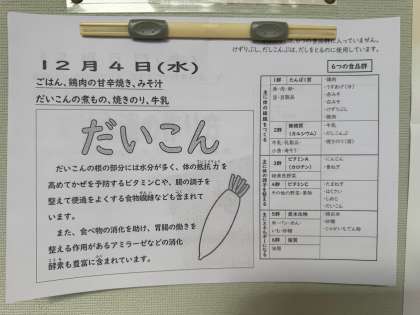 12月4日(水)
ごはん、鶏肉の甘辛焼き、みそ汁
だいこんの煮もの、焼きのり、牛乳
だいこん
だいこんの根の部分には水分が多く、体の抵抗力を
高めてかぜを予防するビタミンCや、腸の調子を
整えて便通をよくする食物繊維なども含まれて
います。
また、食べ物の消化を助け、胃腸の働きを
整える作用があるアミラーゼなどの消化
酵素も豊富に含まれています。
の食品群に入っていません。
けずりぶし、だしこんぶは、だしをとるのに使用しています。
6つの食品群
主に体の組織をつくる
1群 たんぱく質
魚・肉・卵・
豆・豆製品
・鶏肉
・赤みそ
・白みそ
・けずりぶし
2群 無機質
(カルシウム)
牛乳・乳製品・
小魚・海そう
・牛乳
・だしこんぶ
・焼きのり
主に体の調子を整える
3群 ビタミンA
(カロテン)
緑黄色野菜
・にんじん
4群 ビタミンC
その他の野菜・果物
・たまねぎ
・はくさい
・しめじ
・だいこん
主にエネルギーになる
5群 炭水化物
米・パン・めん・
いも・砂糖
・精白米
・砂糖
・じゃがいもでん粉
6群 脂質
油脂